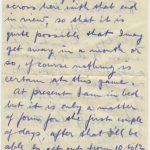 across here with that end
in view, so that it is
quite possible that I may
get away in a month or
so, of course nothing is
certain at this game.
At present I am in bed
but it is only a matter
of form for the first couple
of days, after that I'll be
able to get out from 10 to